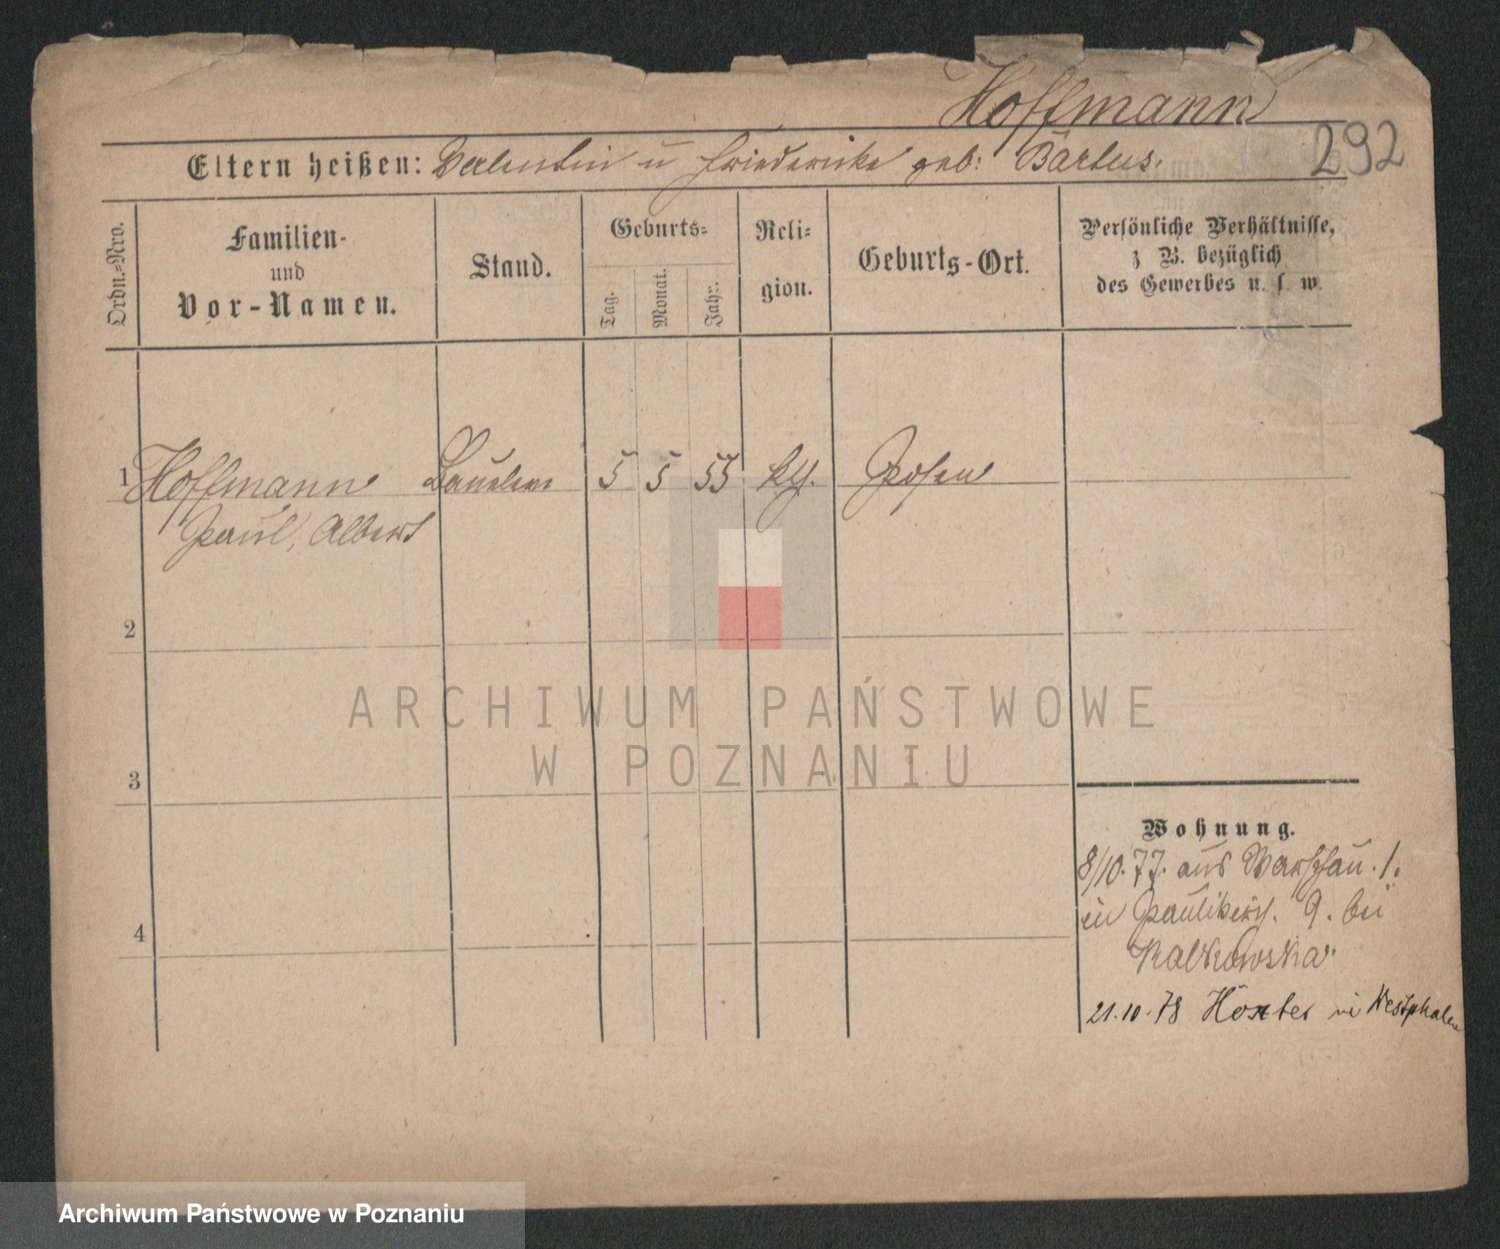 Hoffmann
292
Eltern heißen: Valentin u Friedericke geb: Bartus.
Ordn.-Nro.
Familien-
und
Vor-Namen.
Stand.
Geburts-
Tag.
Monat.
Jahr.
Reli-
gion.
Geburts-Ort.
Persönliche Verhältnisse,
z B. bezüglich
des Gewerbes u. s. w.
1 Hoffmann 5 5 55 kth. Posen
Paul, Albert
2
3
4
Wohnung.
8/10.77. aus Warschau. /.
in Paulikirch. 9. bei
Kalkowska.
21.10.78 Höxter in Westphalen
ARCHIWUM PAŃSTWOWE
W POZNANIU
Archiwum Państwowe w Poznaniu